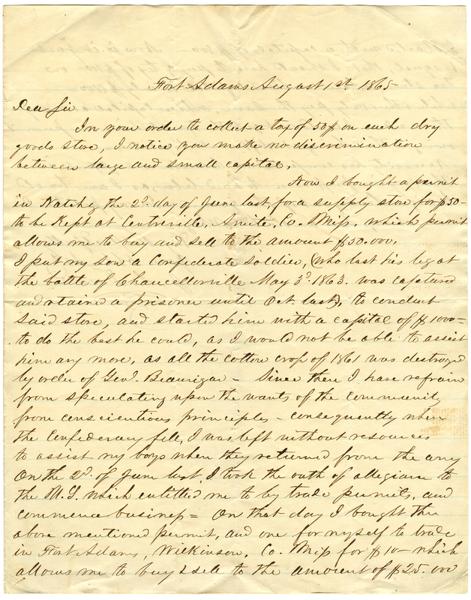 Fort Adams August 1st 1865
Dear Sir
In your order to collect a tax of 50$ on each dry
goods store, I notice you make no discrimination
between large and small capital.
Now I bought a permit
in Natchez the 2d day of June last, for a supply store for $50-
to be Kept at Centreville, Amite, Co. Miss. which permit
allows me to buy and sell to the amount $50.000.
I put my son a Confederate soldier, (who lost his leg at
the battle of Chancellorville May 3d 1863. was captured
and retained a prisoner until Oct last), to conduct
said store, and started him with a capital of $1000=
to do the best he could, as I would not be able to assist
him any more, as all the cotton crop of 1861 was destroyed
by order of Genl. Beauregar - Since then I have refrain
from speculating upon the wants of the community
from conscientious principles - consequently when
the Confederacy fell, I was left without resources
to assist my boys when they returned from the army
On the 2d. of June last I took the oath of allegiance to
the U.S. which entitled me to by trade permits, and
commence business = On that day I bought the
above mentioned permit, and one for myself to trade
in Fort Adams, Wilkinson, Co. Miss for $10- which
allows me to buy & sell to the amount of $25.000